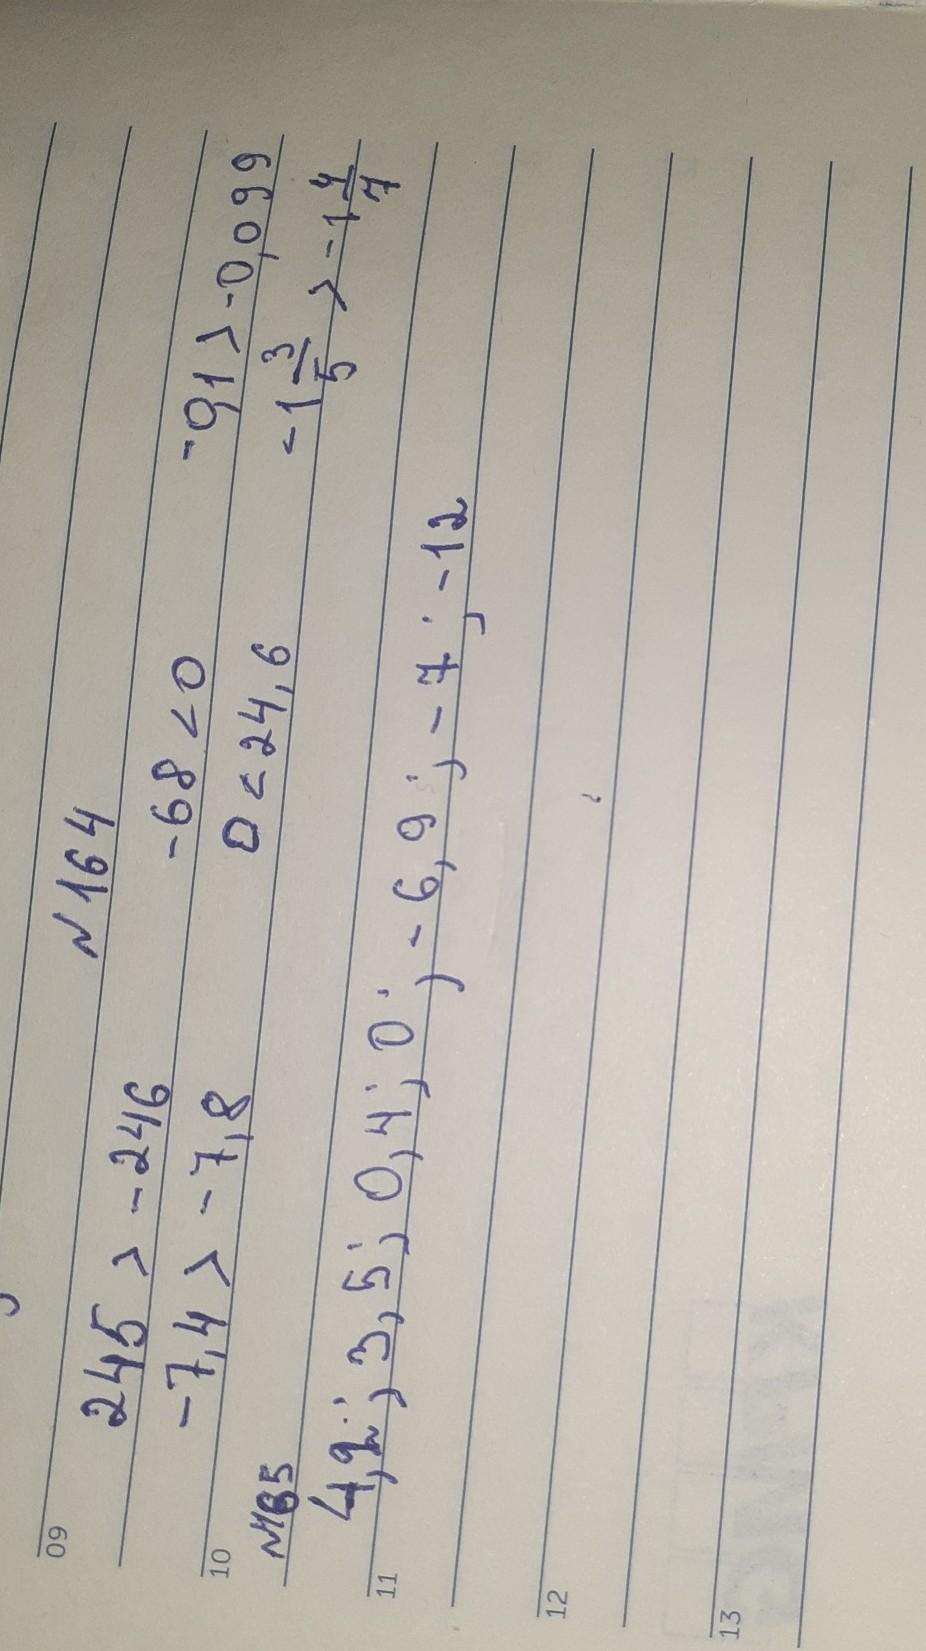 09
N 164
245 > -246 -68 < 0 -0,1 > -0,099
10
-7,4 > -7,8 0 < 24,6 -1 3/5 > -1 4/7
N165
11
4,2; 3,5; 0,4; 0; -6,9; -7; -12
12
13